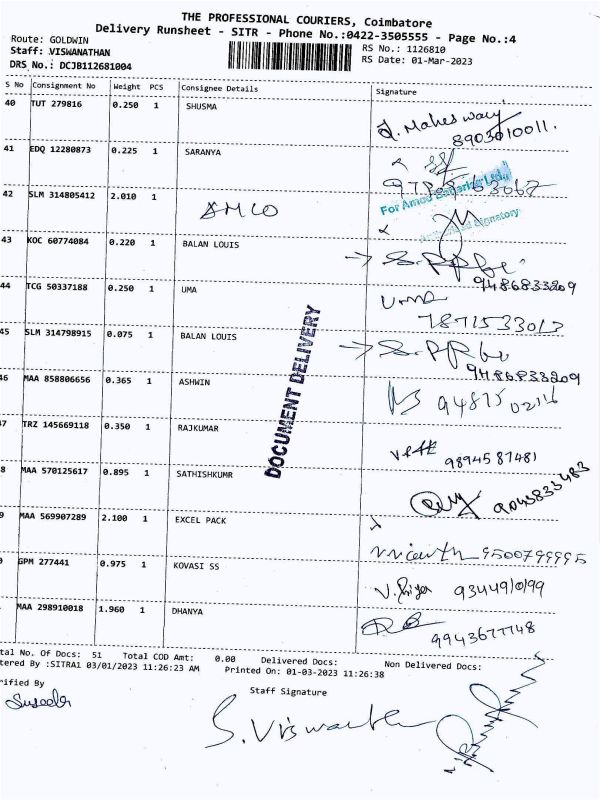 THE PROFESSIONAL COURIERS, Coimbatore
Delivery Runsheet - SITR - Phone No.:0422-3505555 - Page No.:4
Route: GOLDWIN
Staff: VISWANATHAN
RS No.: 1126810
DRS No.: DCJB112681004
RS Date: 01-Mar-2023
S No Consignment No Weight PCS Consignee Details Signature
40 TUT 279816 0.250 1 SHUSMA
8903010011.
41 EDQ 12280873 0.225 1 SARANYA
42 SLM 314805412 2.010 1 AMCO
For Amco
Authorised Signatory
43 KOC 60774084 0.220 1 BALAN LOUIS
9486833209
44 TCG 50337188 0.250 1 UMA Uma
7871533017
45 SLM 314798915 0.075 1 BALAN LOUIS
9486833209
46 MAA 858806656 0.365 1 ASHWIN
DOCUMENT DELIVERY
47 TRZ 145669118 0.350 1 RAJKUMAR
9894587481
8 MAA 570125617 0.895 1 SATHISHKUMR
9043833483
9 MAA 569907289 2.100 1 EXCEL PACK
9500799995
0 GPM 277441 0.975 1 KOVASI SS
V. Priya 9344910199
MAA 298910018 1.960 1 DHANYA
9943677748
tal No. Of Docs: 51 Total COD Amt: 0.00 Delivered Docs: Non Delivered Docs:
tered By :SITRA1 03/01/2023 11:26:23 AM Printed On: 01-03-2023 11:26:38
rified By
Staff Signature